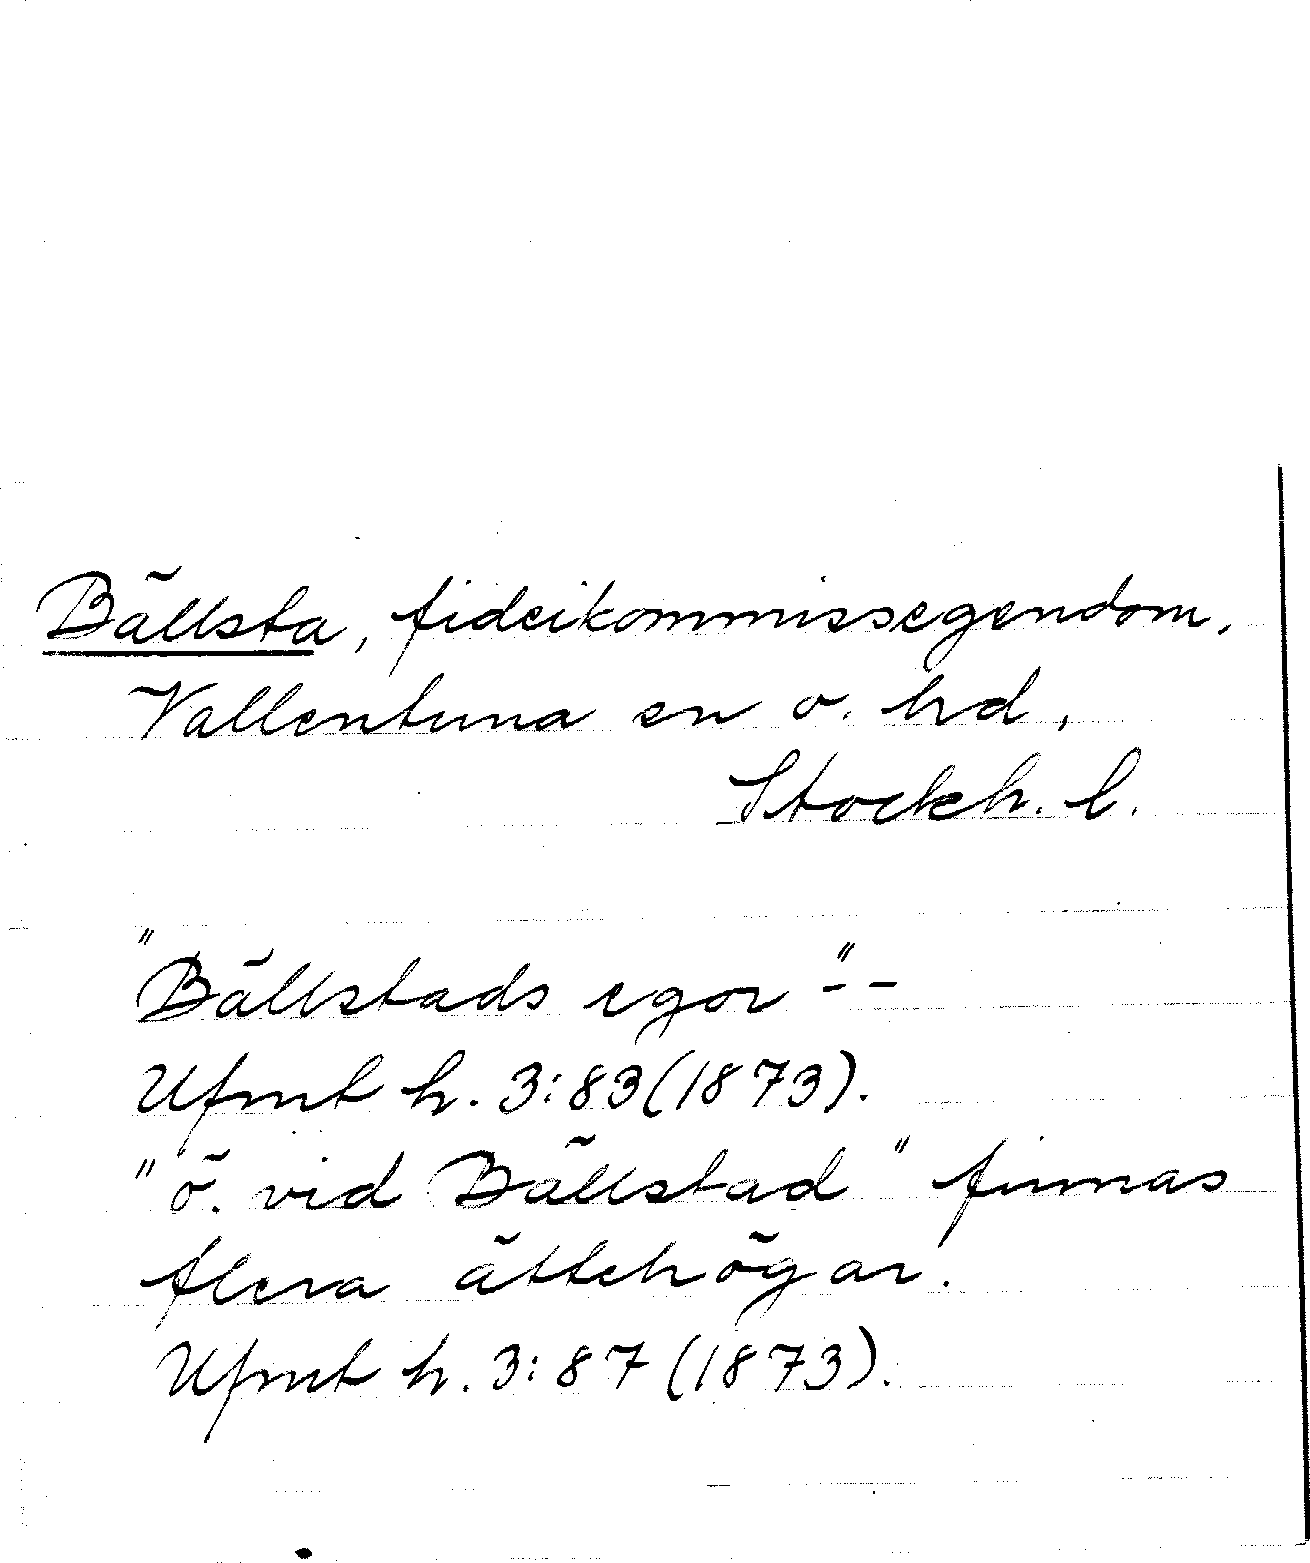 Bällsta, fideikommissegendom,
Vallentuna sn o. hd,
Stockh. l.
"Bällstads egor" --
Ufmt h. 3:83 (1873).
"ö. vid Bällstad" finnas
flera ättehögar.
Ufmt h. 3:87 (1873).